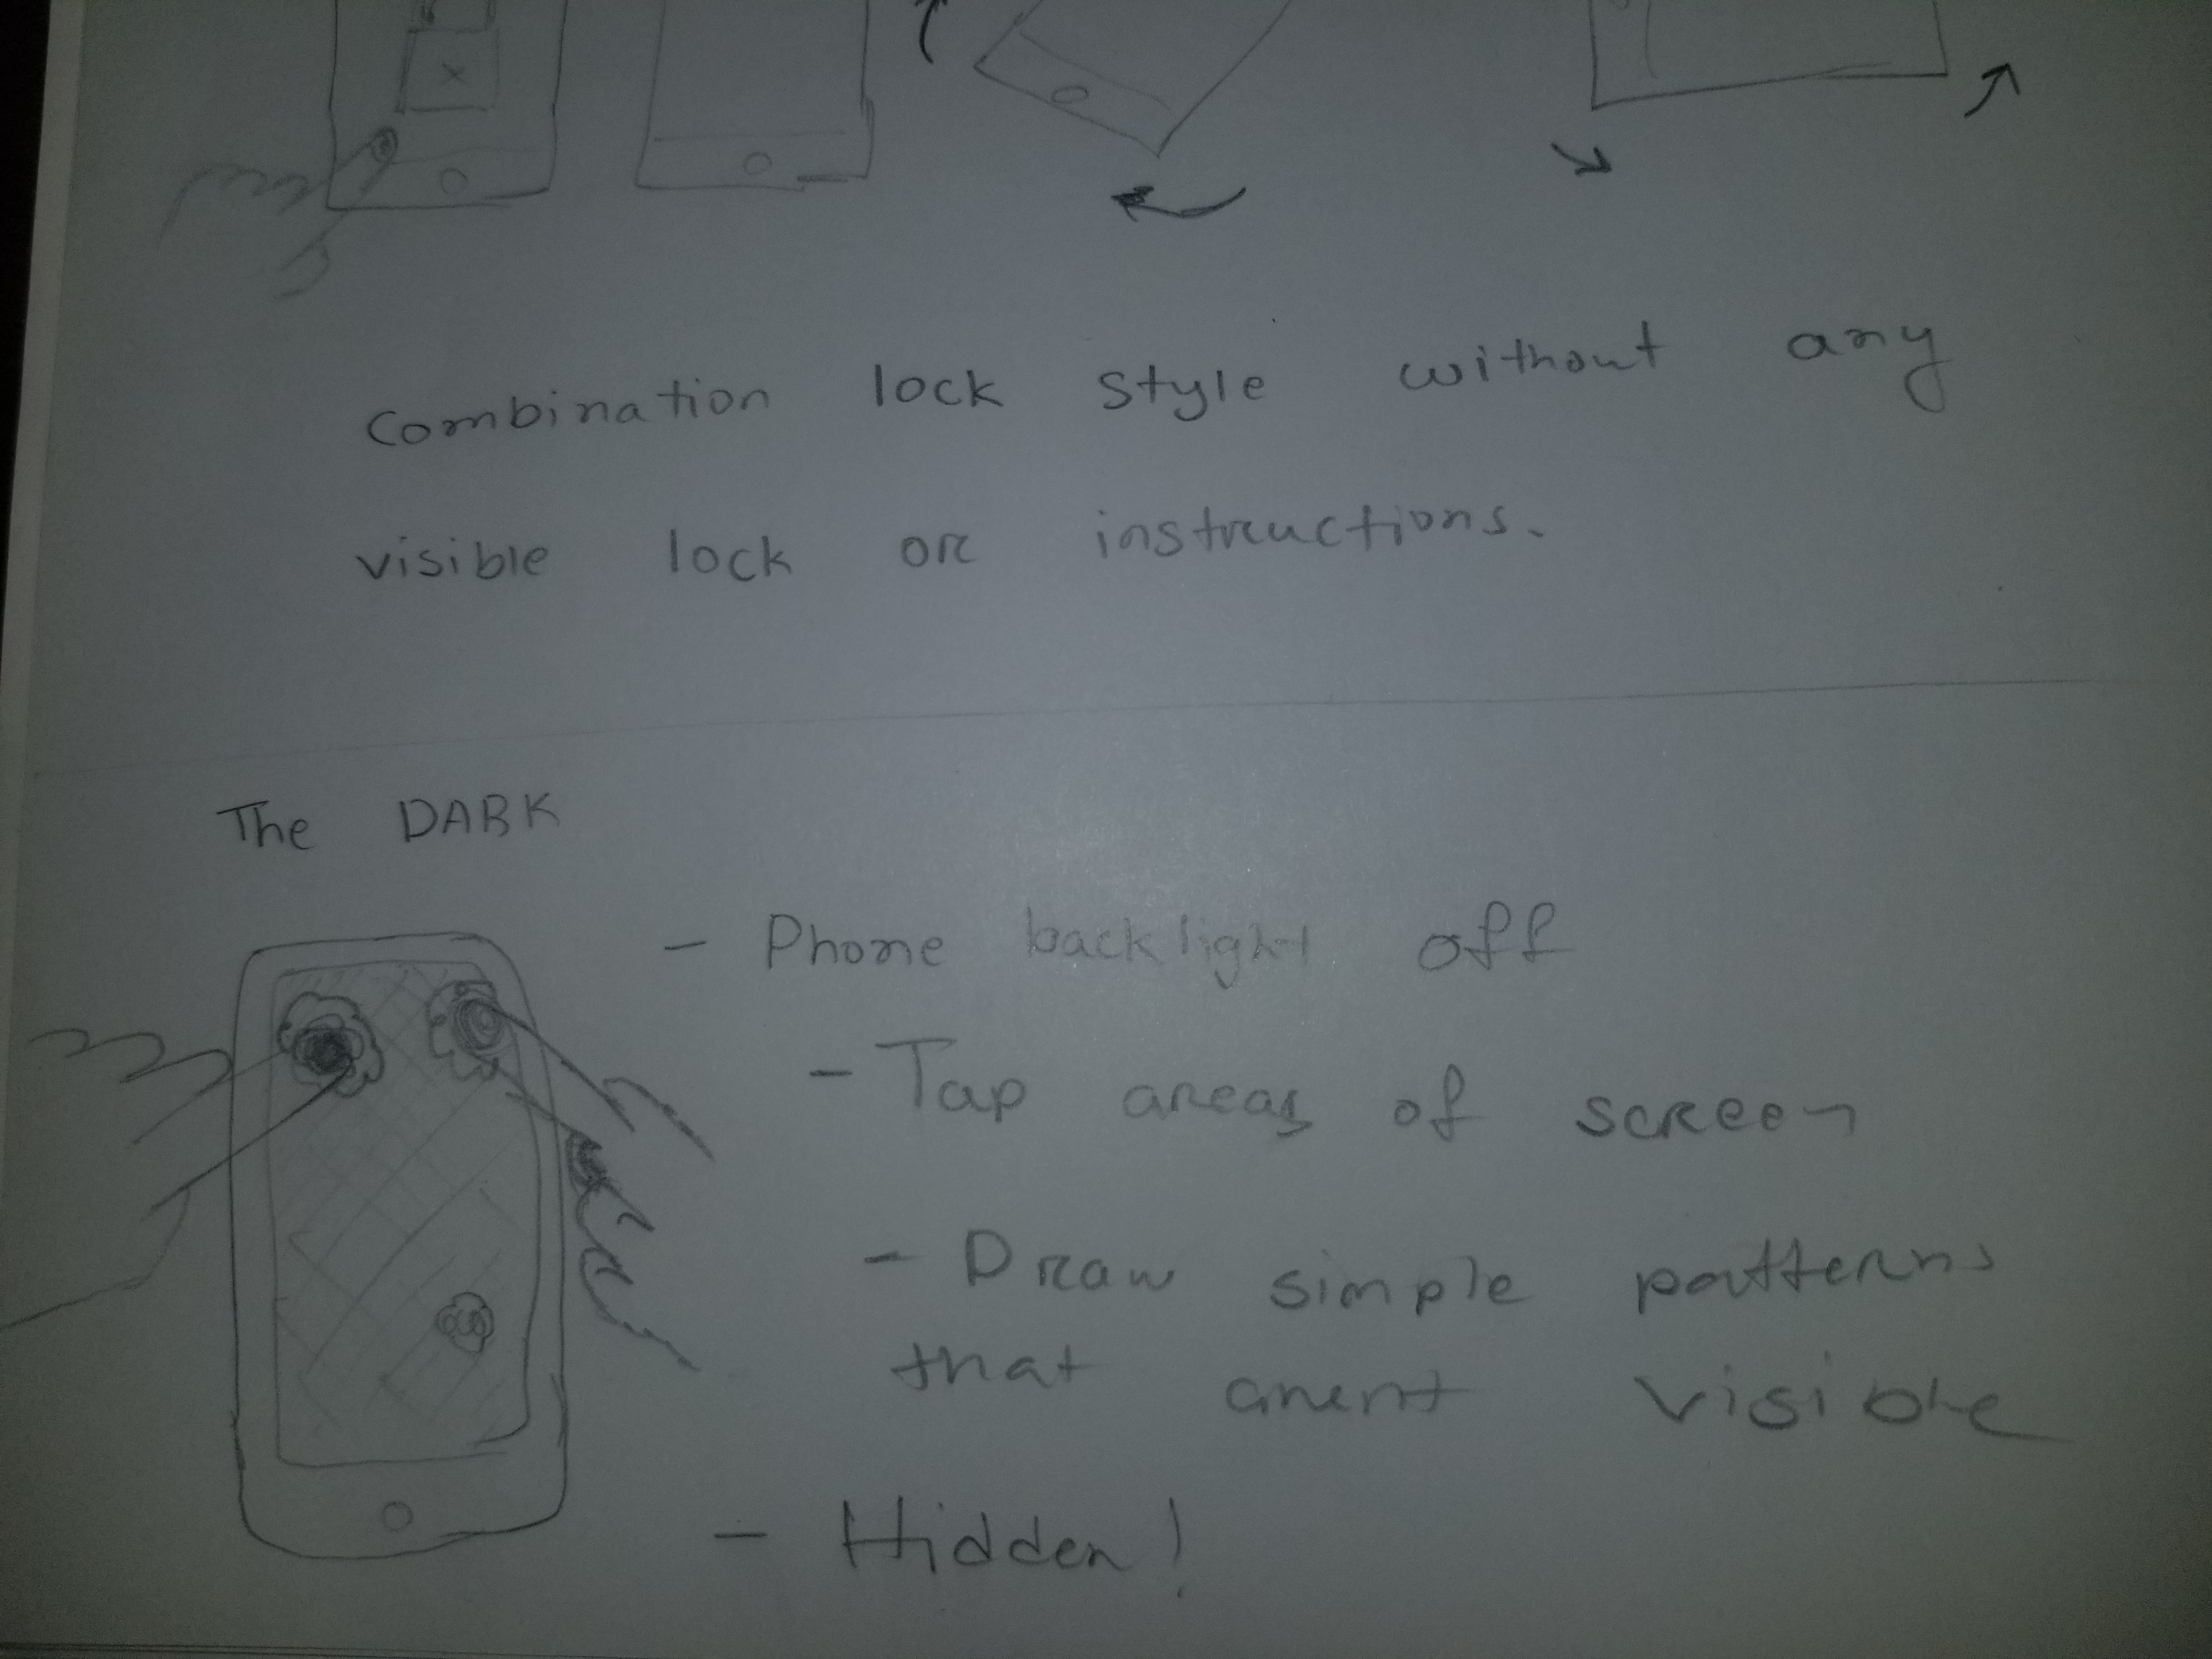 Combination lock style without any
visible lock or instructions.
The DARK
- Phone backlight off
- Tap areas of screen
- Draw simple patterns
that arent visible
- Hidden!